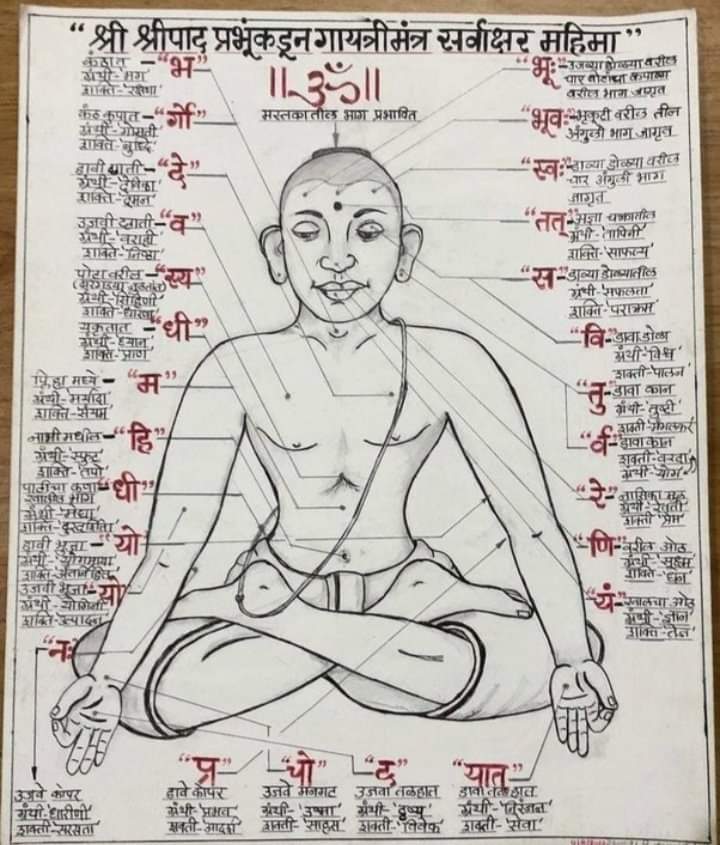 “ श्री श्रीपाद प्रभूंकडून गायत्रीमंत्र सर्वाक्षर महिमा ”
॥ ॐ ॥
मस्तकातील भाग प्रभावित
कंठात - “भ”
ग्रंथी - 'भग'
शक्ति - 'रक्षणा'
कंठ कुपात - “र्गो”
ग्रंथी - 'गोमती'
शक्ति - 'बुध्दि'
डावी छाती - “दे”
ग्रंथी - 'देविका'
शक्ति - 'दमन'
उजवी छाती - “व”
ग्रंथी - 'वराही'
शक्ति - 'निष्ठा'
पोटावरील - “स्य”
ग्रंथी - 'सिंहिणी'
शक्ति - 'धारणा'
यकृतात - “धी”
ग्रंथी - 'ध्यान'
शक्ति - 'प्राण'
मध्ये - “म”
ग्रंथी - 'मर्यादा'
शक्ति - 'संयम'
नाभी मधील - “हि”
ग्रंथी - 'स्फुट'
शक्ति - 'तपो'
पाठीचा कणा “धी”
भाग
ग्रंथी - 'मेधा'
शक्ति - 'दुरदर्शिता'
डावी भूजा - “यो”
ग्रंथी - 'योगमाया'
शक्ति -
उजवी भूजा - “यो”
ग्रंथी - 'योगिनी'
शक्ति - 'उत्पादन'
“नः”
उजवे कोपर
ग्रंथी - 'धारीणी'
शक्ती - 'सरसता'
“भूः” - उजव्या डोळ्या वरील
चार बोटांचा कपाळा
वरील भाग जागृत
“भूवः” - भृकुटी वरील तीन
अंगुळी भाग जागृत
“स्वः” - डाव्या डोळ्या वरील
चार अंगुळी भाग
जागृत
“तत्” - आज्ञा चक्रातील
ग्रंथी - 'तापिनी'
शक्ति - 'साफल्य'
“स” - डाव्या डोळ्यातील
ग्रंथी - 'सफलता'
शक्ति - 'पराक्रम'
“वि” - डावा डोळा
ग्रंथी - 'विश्व'
शक्ती - 'पालन'
“तु” - डावा कान
ग्रंथी - 'तुष्टी'
शक्ती -
“र्व” - डावा कान
शक्ती - 'वरदा'
ग्रंथी - 'योग'
“रे” - नासिका मूळ
ग्रंथी - 'रेवती'
शक्ती 'प्रेम'
“णि” - वरील ओठ
ग्रंथी - 'सूक्ष्म'
शक्ति - 'धन'
“यं” - खालचा ओठ
ग्रंथी - 'ज्ञान'
शक्ति - 'तेज'
“प्र” “चो” “द” “यात्”
डावे कोपर
ग्रंथी - 'प्रभव'
शक्ती - 'आदर्श'
उजवे मनगट
ग्रंथी - 'उष्मा'
शक्ती - 'साहस'
उजवा तळहात
ग्रंथी - 'दृष्य'
शक्ती - 'विवेक'
डावा तळहात
ग्रंथी - 'निरंजन'
शक्ती - 'सेवा'